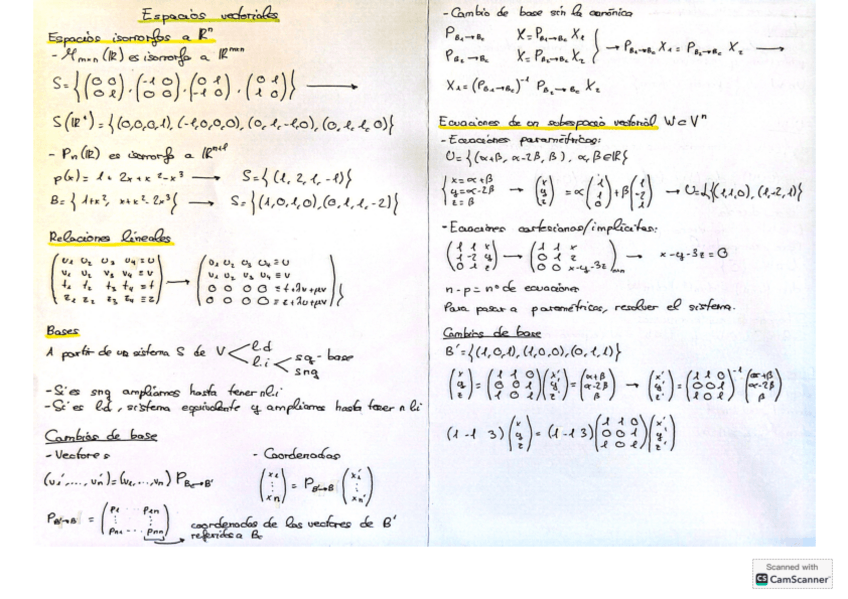 Espacios vectoriales
Espacios isomorfos a ℝⁿ
- Mₘₓₙ(ℝ) es isomorfo a ℝᵐˣⁿ
S = {(0 0 / 0 1), (-1 0 / 0 0), (0 1 / -1 0), (0 1 / 1 0)} ⟶
S(ℝ⁴) = {(0,0,0,1), (-1,0,0,0), (0,1,-1,0), (0,1,1,0)}
- Pₙ(ℝ) es isomorfo a ℝⁿ⁺¹
p(x) = 1 + 2x + x² - x³ ⟶ S = {(1, 2, 1, -1)}
B = {1+x², x+x²-2x³} ⟶ S = {(1,0,1,0), (0,1,1,-2)}
Relaciones lineales
(u₁ u₂ u₃ u₄ ≡ u / v₁ v₂ v₃ v₄ ≡ v / t₁ t₂ t₃ t₄ ≡ t / z₁ z₂ z₃ z₄ ≡ z) ⟶ (u₁ u₂ u₃ u₄ ≡ u / v₁ v₂ v₃ v₄ ≡ v / 0 0 0 0 ≡ t+λu+μv / 0 0 0 0 ≡ z+λu+μv)
Bases
A partir de un sistema S de V
l.d
l.i
sg - base
sng
- Si es sng ampliamos hasta tener n l.i
- Si es l.d, sistema equivalente y ampliamos hasta tener n li
Cambios de base
- Vectores
(u₁', ..., uₙ') = (u₁, ..., uₙ) P
- Coordenadas
(x₁ ⋮ xₙ) = P (x₁' ⋮ xₙ')
= (p₁ p₁ₙ / pₙ₁ ... pₙₙ)
coordenadas de los vectores de B'
referidos a B
- Cambio de base sin la canónica
P_B₁→Bc X = P_B₁→Bc X₁
P_B₂→Bc X = P_B₂→Bc X₂ → P_B₁→Bc X₁ = P_B₂→Bc X₂ ⟶
X₁ = (P_B₁→Bc)⁻¹ P_B₂→Bc X₂
Ecuaciones de un subespacio vectorial W⊂Vⁿ
- Ecuaciones paramétricas:
U = {(α+β, α-2β, β), α, β∈ℝ}
{x=α+β / y=α-2β / z=β → (x / y / z) = α(1 / 1 / 0) + β(1 / -2 / 1) → U = L{(1,1,0), (1,-2,1)}
- Ecuaciones cartesianas/implícitas:
(1 1 x / 1 -2 y / 0 1 z) → (1 1 x / 0 1 z / 0 0 x-y-3z) → x-y-3z=0
n - p = nº de ecuaciones
Para pasar a paramétricas, resolver el sistema.
Cambios de base
B' = {(1,0,1), (1,0,0), (0,1,1)}
(x / y / z) = (1 1 0 / 0 0 1 / 1 0 1)(x' / y' / z') = (α+β / α-2β / β) → (x' / y' / z') = (1 1 0 / 0 0 1 / 1 0 1)⁻¹ (α+β / α-2β / β)
(1 -1 3)(x / y / z) = (1 -1 3)(1 1 0 / 0 0 1 / 1 0 1)(x' / y' / z')
Scanned with
CS CamScanner